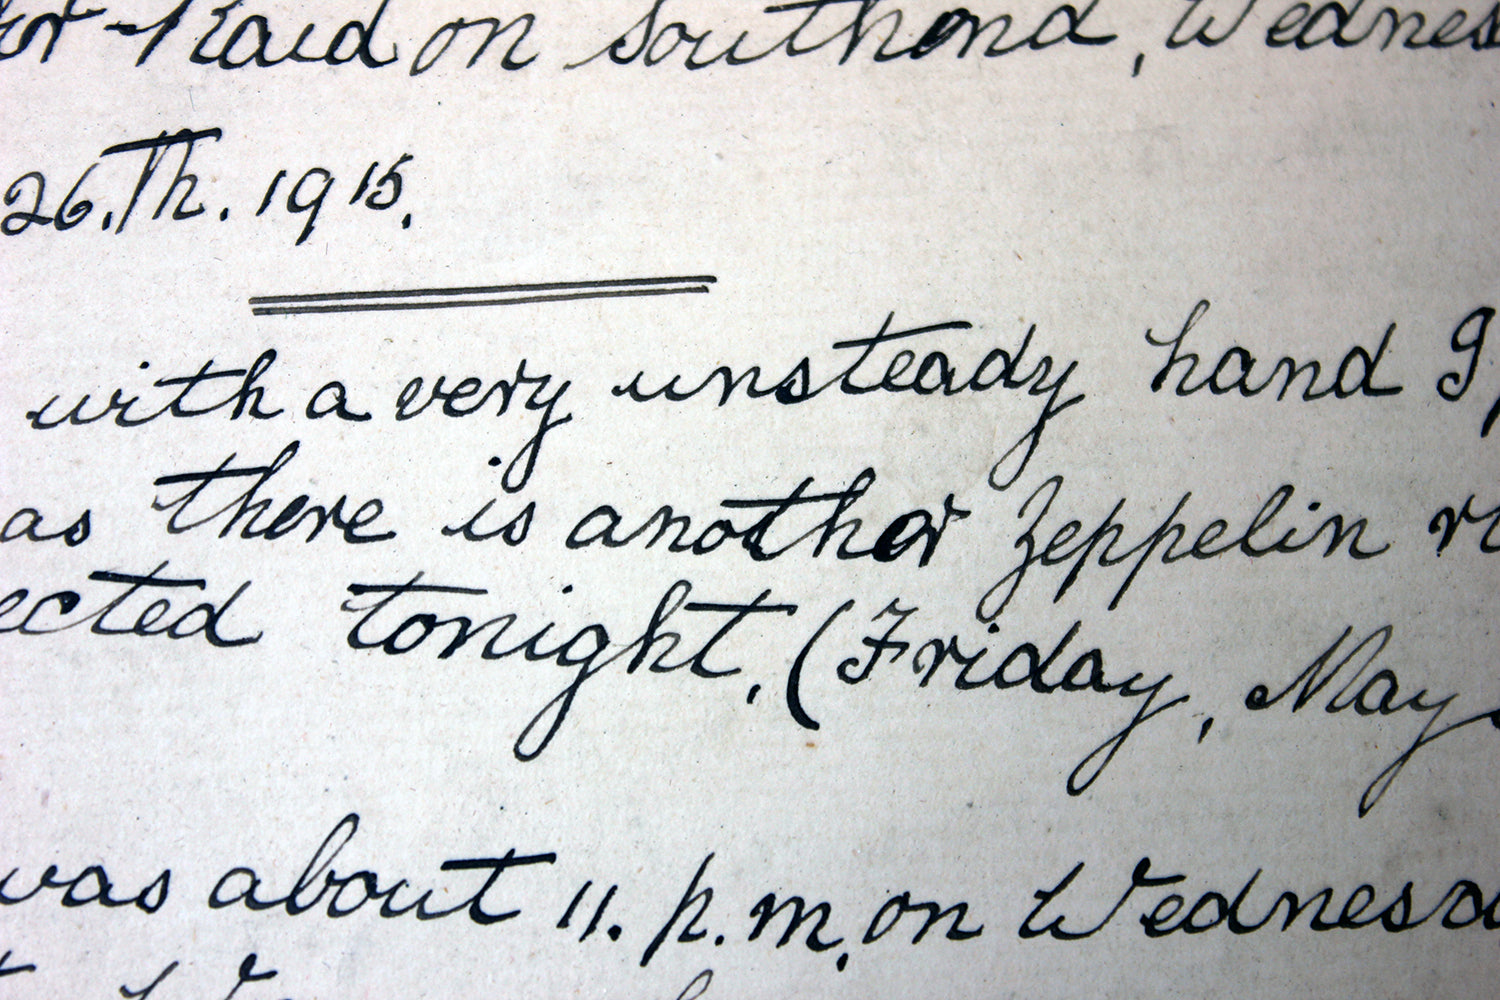 Raid on Southend, Wednes
26.Th. 1915.
with a very unsteady hand I
as there is another Zeppelin
ected tonight, (Friday, May
was about 11. p.m. on Wednesd